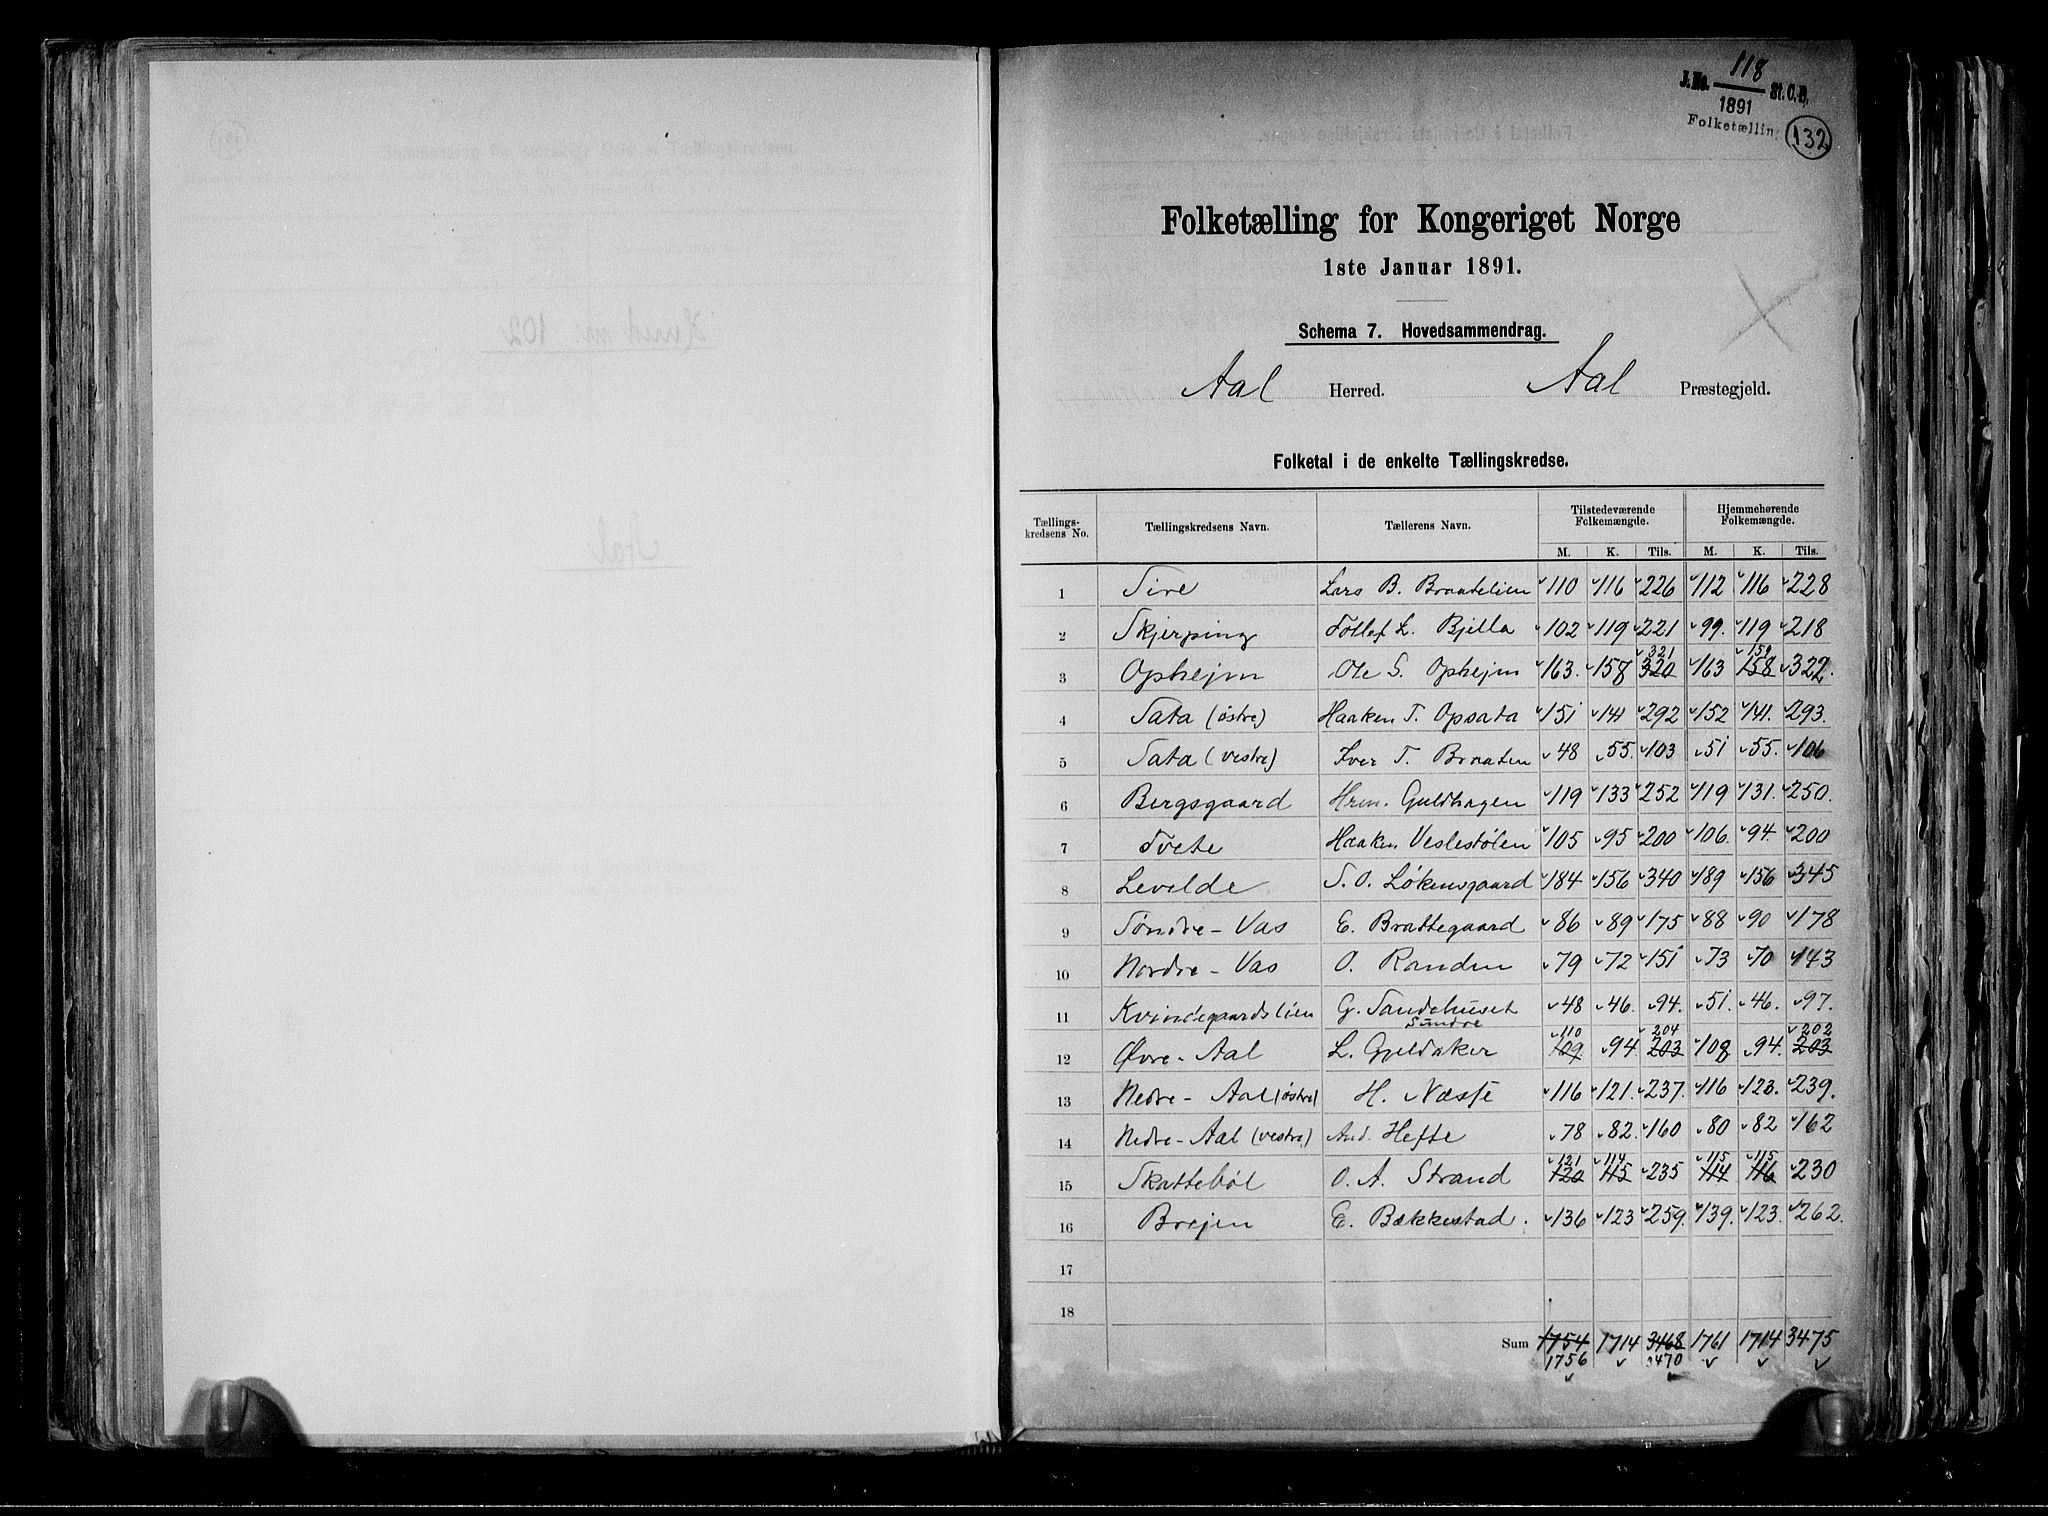 118
J.No. St.C.B.
1891
Folketællin
132
Folketælling for Kongeriget Norge
1ste Januar 1891.
Schema 7. Hovedsammendrag.
Aal Herred. Aal Præstegjeld.
Folketal i de enkelte Tællingskredse.
Tællings-kredsens No. Tællingskredsens Navn. Tællerens Navn. Tilstedeværende Folkemængde. Hjemmehørende Folkemængde.
M. K. Tils. M. K. Tils.
1 Sire Lars B. Braatelien 110 116 226 112 116 228
2 Skjerping Tollef L. Bjella 102 119 221 99. 119 218
321 159
3 Ophejm Ole S. Ophejm 163. 158 320 163 158 322.
4 Sata (østre) Haaken T. Opsata 151 141 292 152 141. 293.
5 Sata (vestre) Iver T. Braaten 48 55. 103 51 55. 106
6 Bergsgaard Hren. Guldhagen 119 133 252 119 131. 250.
7 Tvete Haaken Veslestølen 105 95 200 106. 94. 200
8 Levelde S. O. Løkensgaard 184 156 340 189 156 345
9 Søndre - Vas E. Brattegaard 86 89 175 88 90 178
10 Nordre - Vas O. Randen 79 72 151 73 70 143
11 Kvindegaardslien G. Sandehuset 48 46. 94. 51 46. 97.
Sundre
110 204 202
12 Øvre - Aal L. Guldaker 109. 94 203 108 94. 203
13 Nedre - Aal (østre) H. Næsse 116 121. 237. 116 123. 239.
14 Nedre - Aal (vestre) And. Hefte 78 82. 160 80 82 162
121 114 115 115
15 Skattebøl O. A. Strand 120 115 235 114 116 230
16 Brejen E. Bækkestad. 136 123 259. 139. 123. 262.
17
18
Sum 1754 1714 3468 1761 1714 3475
1756 3470